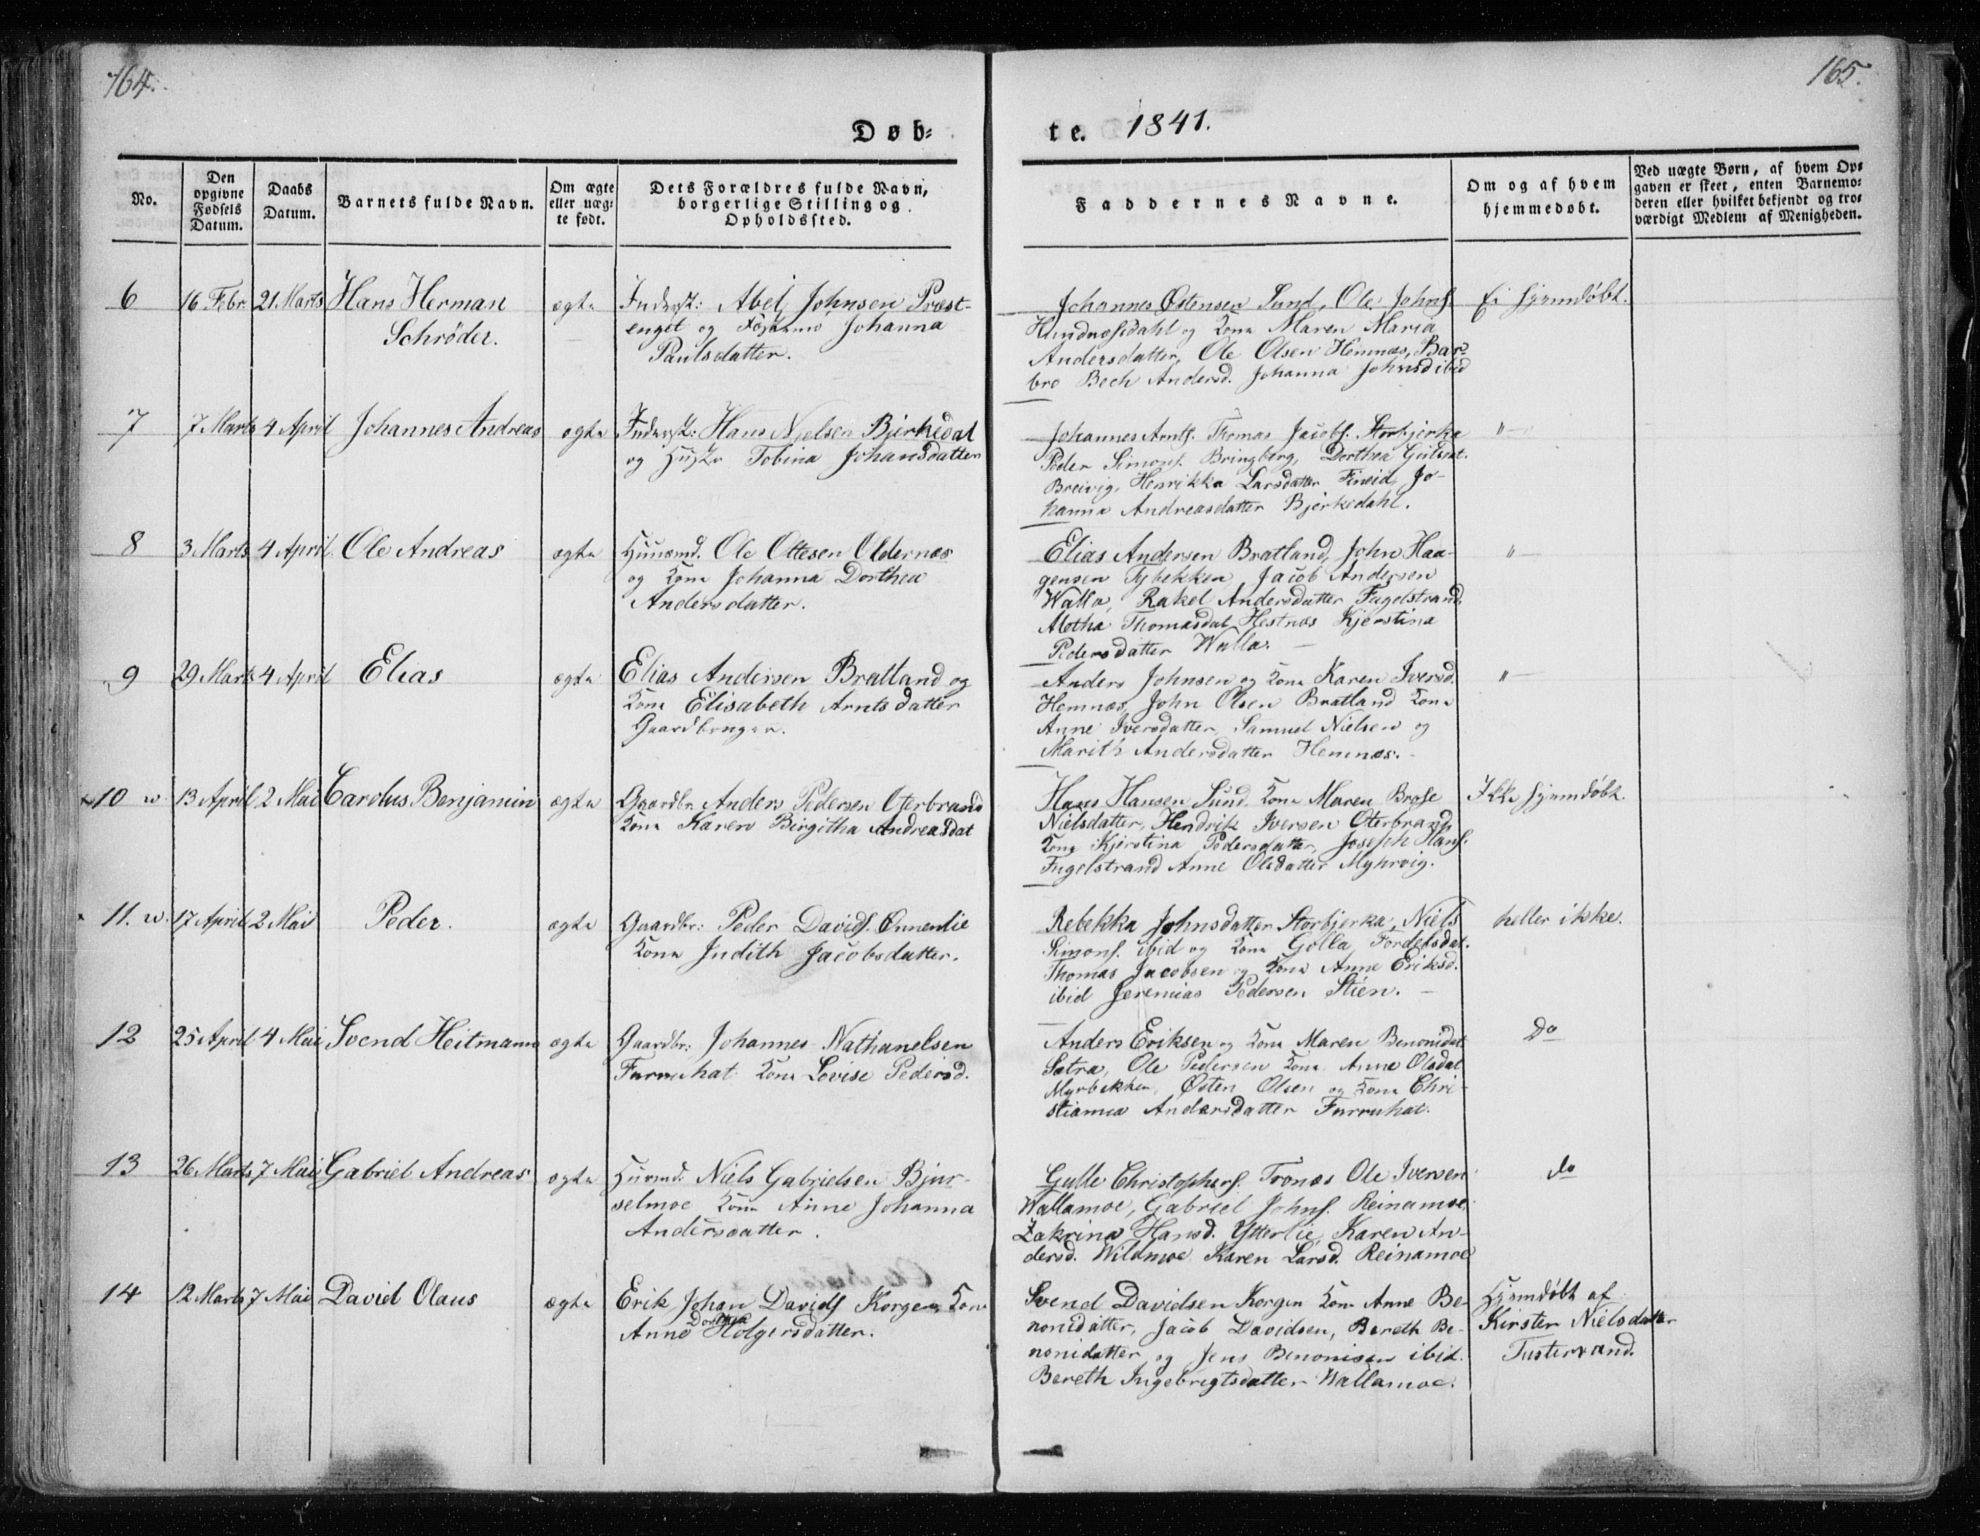 164.
165.
Døb=
te. 1841.
No.
Den opgivne Fødsels Datum.
Daabs Datum.
Barnets fulde Navn.
Om ægte eller uæg= te født.
Dets Forældres fulde Navn, borgerlige Stilling og Opholdssted.
Faddernes Navne.
Om og af hvem hjemmedøbt.
Ved uægte Børn, af hvem Op= gaven er skeet, enten Barnemo= deren eller hvilket bekjendt og tro= værdigt Medlem af Menigheden.
6 16 Febr. 21 Marts Hans Herman
Schrøder.
ægte
Inderst: Abel Johnsen Præst-
enget og Johanna
Paulsdatter.
Johannes Østensen Sund, Ole Johns.
og Kone Maren Maria
Andersdatter, Ole Olsen Hemnæs, Bar-
bro Bech Andersd. Johanna Johnsd ibid
Ei hjemdøbt.
7 7 Marts 4 April Johannes Andreas
ægte
Inderst: Hans Nielsen Bjerkedal
og Tobina Johansdatter
Johannes Arnts. Thomas Jacobs. Storbjerka
Peder Simons. Bringberg, Dorthea
Breivig, Henrikka Larsdatter Fineid, Jo-
hanna Andreasdatter Bjerkedahl.
"
8 3 Marts 4 April Ole Andreas
ægte
Huusmd. Ole Ottesen Oldernæs
og Kone Johanna Dorthea
Andersdatter.
Elias Andersen Bratland, John Haa-
gensen Jacob Andersen
Walla, Rakel Andersdatter Fugelstrand,
Aletha Thomasdat. Hestnæs Kjerstina
Pedersdatter Walla.
"
9 29 Marts 4 April Elias
ægte
Elias Andersen Bratland og
Kone Elisabeth Arntsdatter
Gaardbruger.
Anders Johnsen og Kone Karen Iversd.
Hemnæs, John Olsen Bratland Kone
Anne Iversdatter, Samuel Nielsen og
Marith Andersdatter Hemnæs.
"
10 w 13 April 2 Mai Carolus Benjamin
ægte
Gaardbr. Anders Pedersen Oterbrand
Kone Karen Birgitha Andreasdat
Hans Hansen Sund Kone Maren Brose
Nielsdatter, Hendrik Iversen Oterbrand
Kone Kjerstina Pedersdatter, Joseph Hans.
Fugelstrand Anne Olsdatter Myhrvig.
Ikke hjemdøbt.
11. w. 17 April 2 Mai Peder.
ægte
Gaardbr: Peder Davids. Ønnenlie
Kone Judith Jacobsdatter.
Rebekka Johnsdatter Storbjerka, Niels
Simons. ibid og Kone Golla Fordelsdat.
Thomas Jacobsen og Kone Anne Eriksd.
ibid Jeremias Pedersen Stien.
heller ikke.
12 25 April 4 Mai Svend Heitmann
ægte
Gaardbr: Johannes Nathanelsen
Furuhat Kone Lovise Pedersd.
Anders Eriksen og Kone Maren Benonidat
Sætra, Ole Pedersen Kone Anne Olsdat
Myrbekken, Østen Olsen og Kone Chri-
stianna Andersdatter Furruhat.
Do
13 26 Marts 7 Mai Gabriel Andreas
ægte
Huusmd. Niels Gabrielsen Bjur-
selmoe Kone Anne Johanna
Andersdatter.
Gulle Christophers. Tronæs Ole Iversen
Wallamoe, Gabriel Johns. Reinamoe
Zakrina Hansd. Ytterlie, Karen An-
dersd. Wildmoe Karen Larsd. Reinamoe
do
14 12 Marts 7 Mai David Olaus
ægte
Erik Johan Davids Korgen Kone
Dorthea
Anne Holgersdatter.
Svend Davidsen Korgen Kone Anne Be-
nonidatter, Jacob Davidsen, Bereth Be-
nonidatter og Jens Benonisen ibid.
Bereth Ingebrigtsdatter Wallamoe.
Hjemdøbt af
Kirsten Nielsdatter
Tustervand.